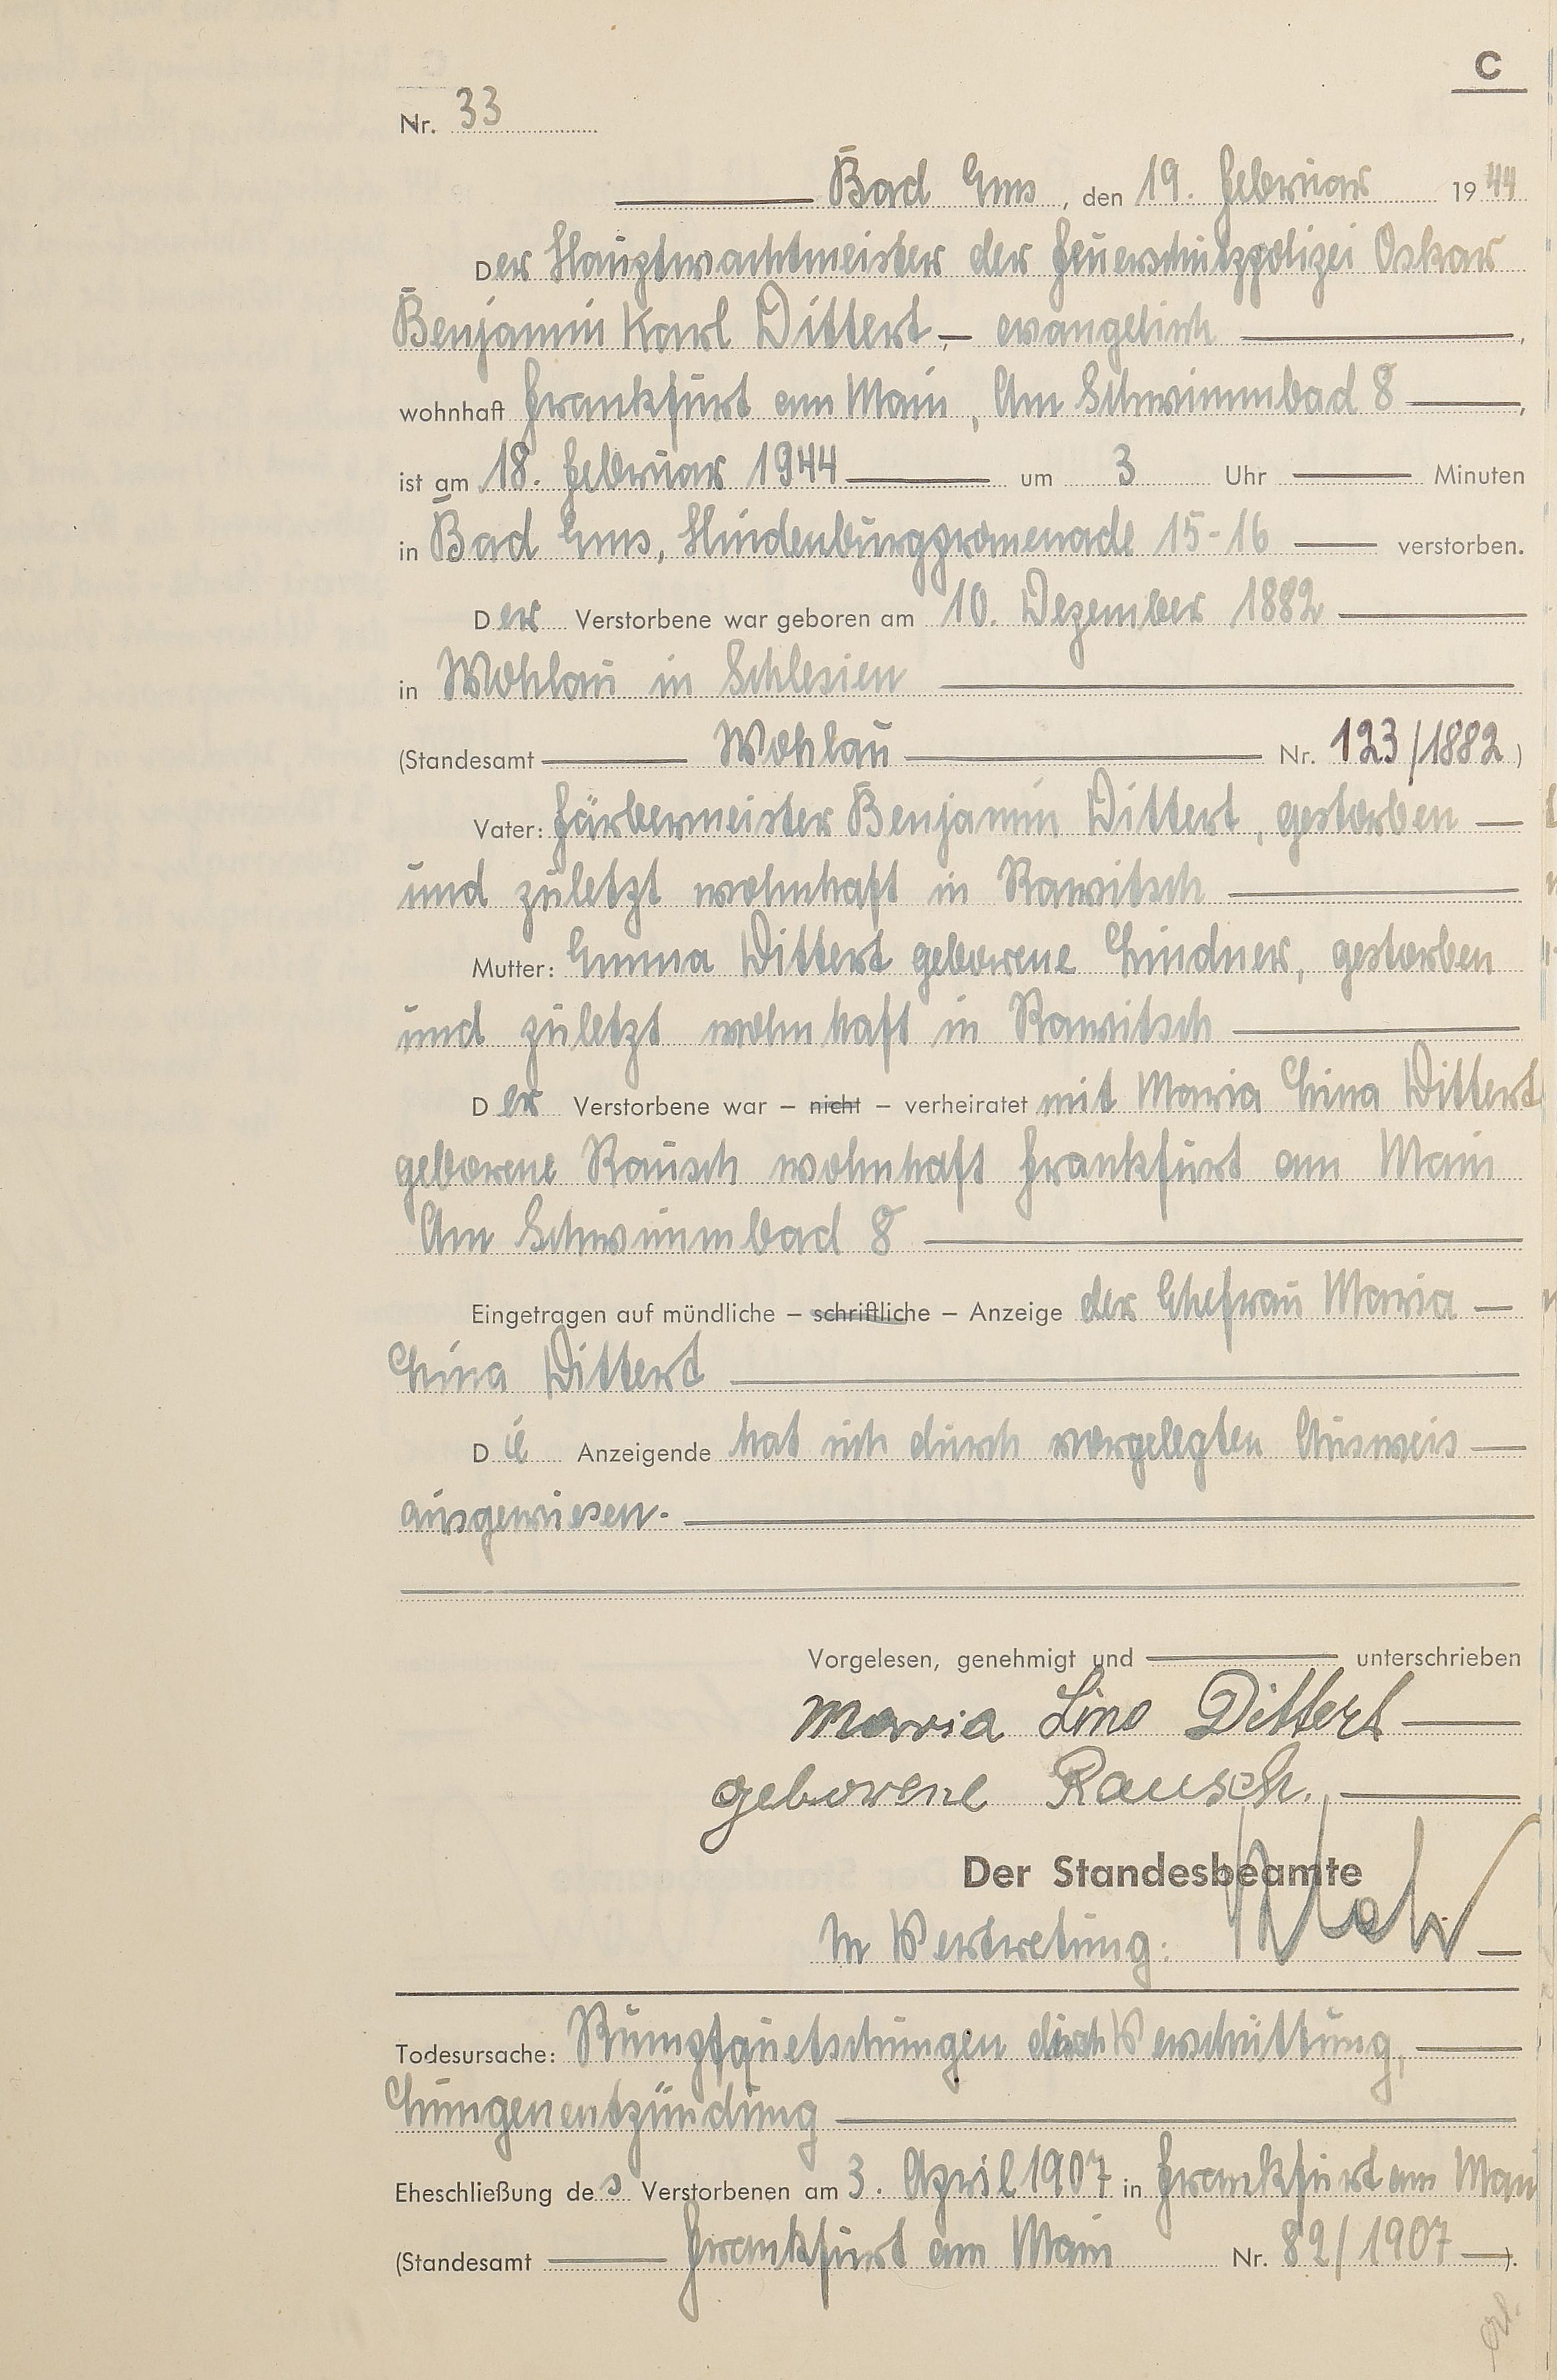 C
Nr. 33
Bad Ems, den 19. Februar 1944
Der Hauptwachtmeister der Feuerschutzpolizei Oskar
Benjamin Karl Dittert, — evangelisch —,
wohnhaft Frankfurt am Main, Am Schwimmbad 8 —,
ist am 18. Februar 1944 — um 3 Uhr — Minuten
in Bad Ems, Hindenburgpromenade 15-16 — verstorben.
Der Verstorbene war geboren am 10. Dezember 1882 —
in Wohlau in Schlesien —
(Standesamt — Wohlau — Nr. 123/1882)
Vater: Färbermeister Benjamin Dittert, gestorben —
und zuletzt wohnhaft in Rawitsch —
Mutter: Emma Dittert geborene Lindner, gestorben
und zuletzt wohnhaft in Rawitsch —
Der Verstorbene war – nicht – verheiratet mit Maria Lina Dittert
geborene Rausch wohnhaft Frankfurt am Main
Am Schwimmbad 8 —
Eingetragen auf mündliche – schriftliche – Anzeige der Ehefrau Maria —
Lina Dittert —
Die Anzeigende hat sich durch vorgelegten Ausweis —
ausgewiesen. —
Vorgelesen, genehmigt und — unterschrieben
Maria Lina Dittert —
geborene Rausch. —
Der Standesbeamte
In Vertretung:
Todesursache: Rumpfquetschungen durch Verschüttung, —
Lungenentzündung —
Eheschließung des Verstorbenen am 3. April 1907 in Frankfurt am Main
(Standesamt — Frankfurt am Main Nr. 82/1907 —).